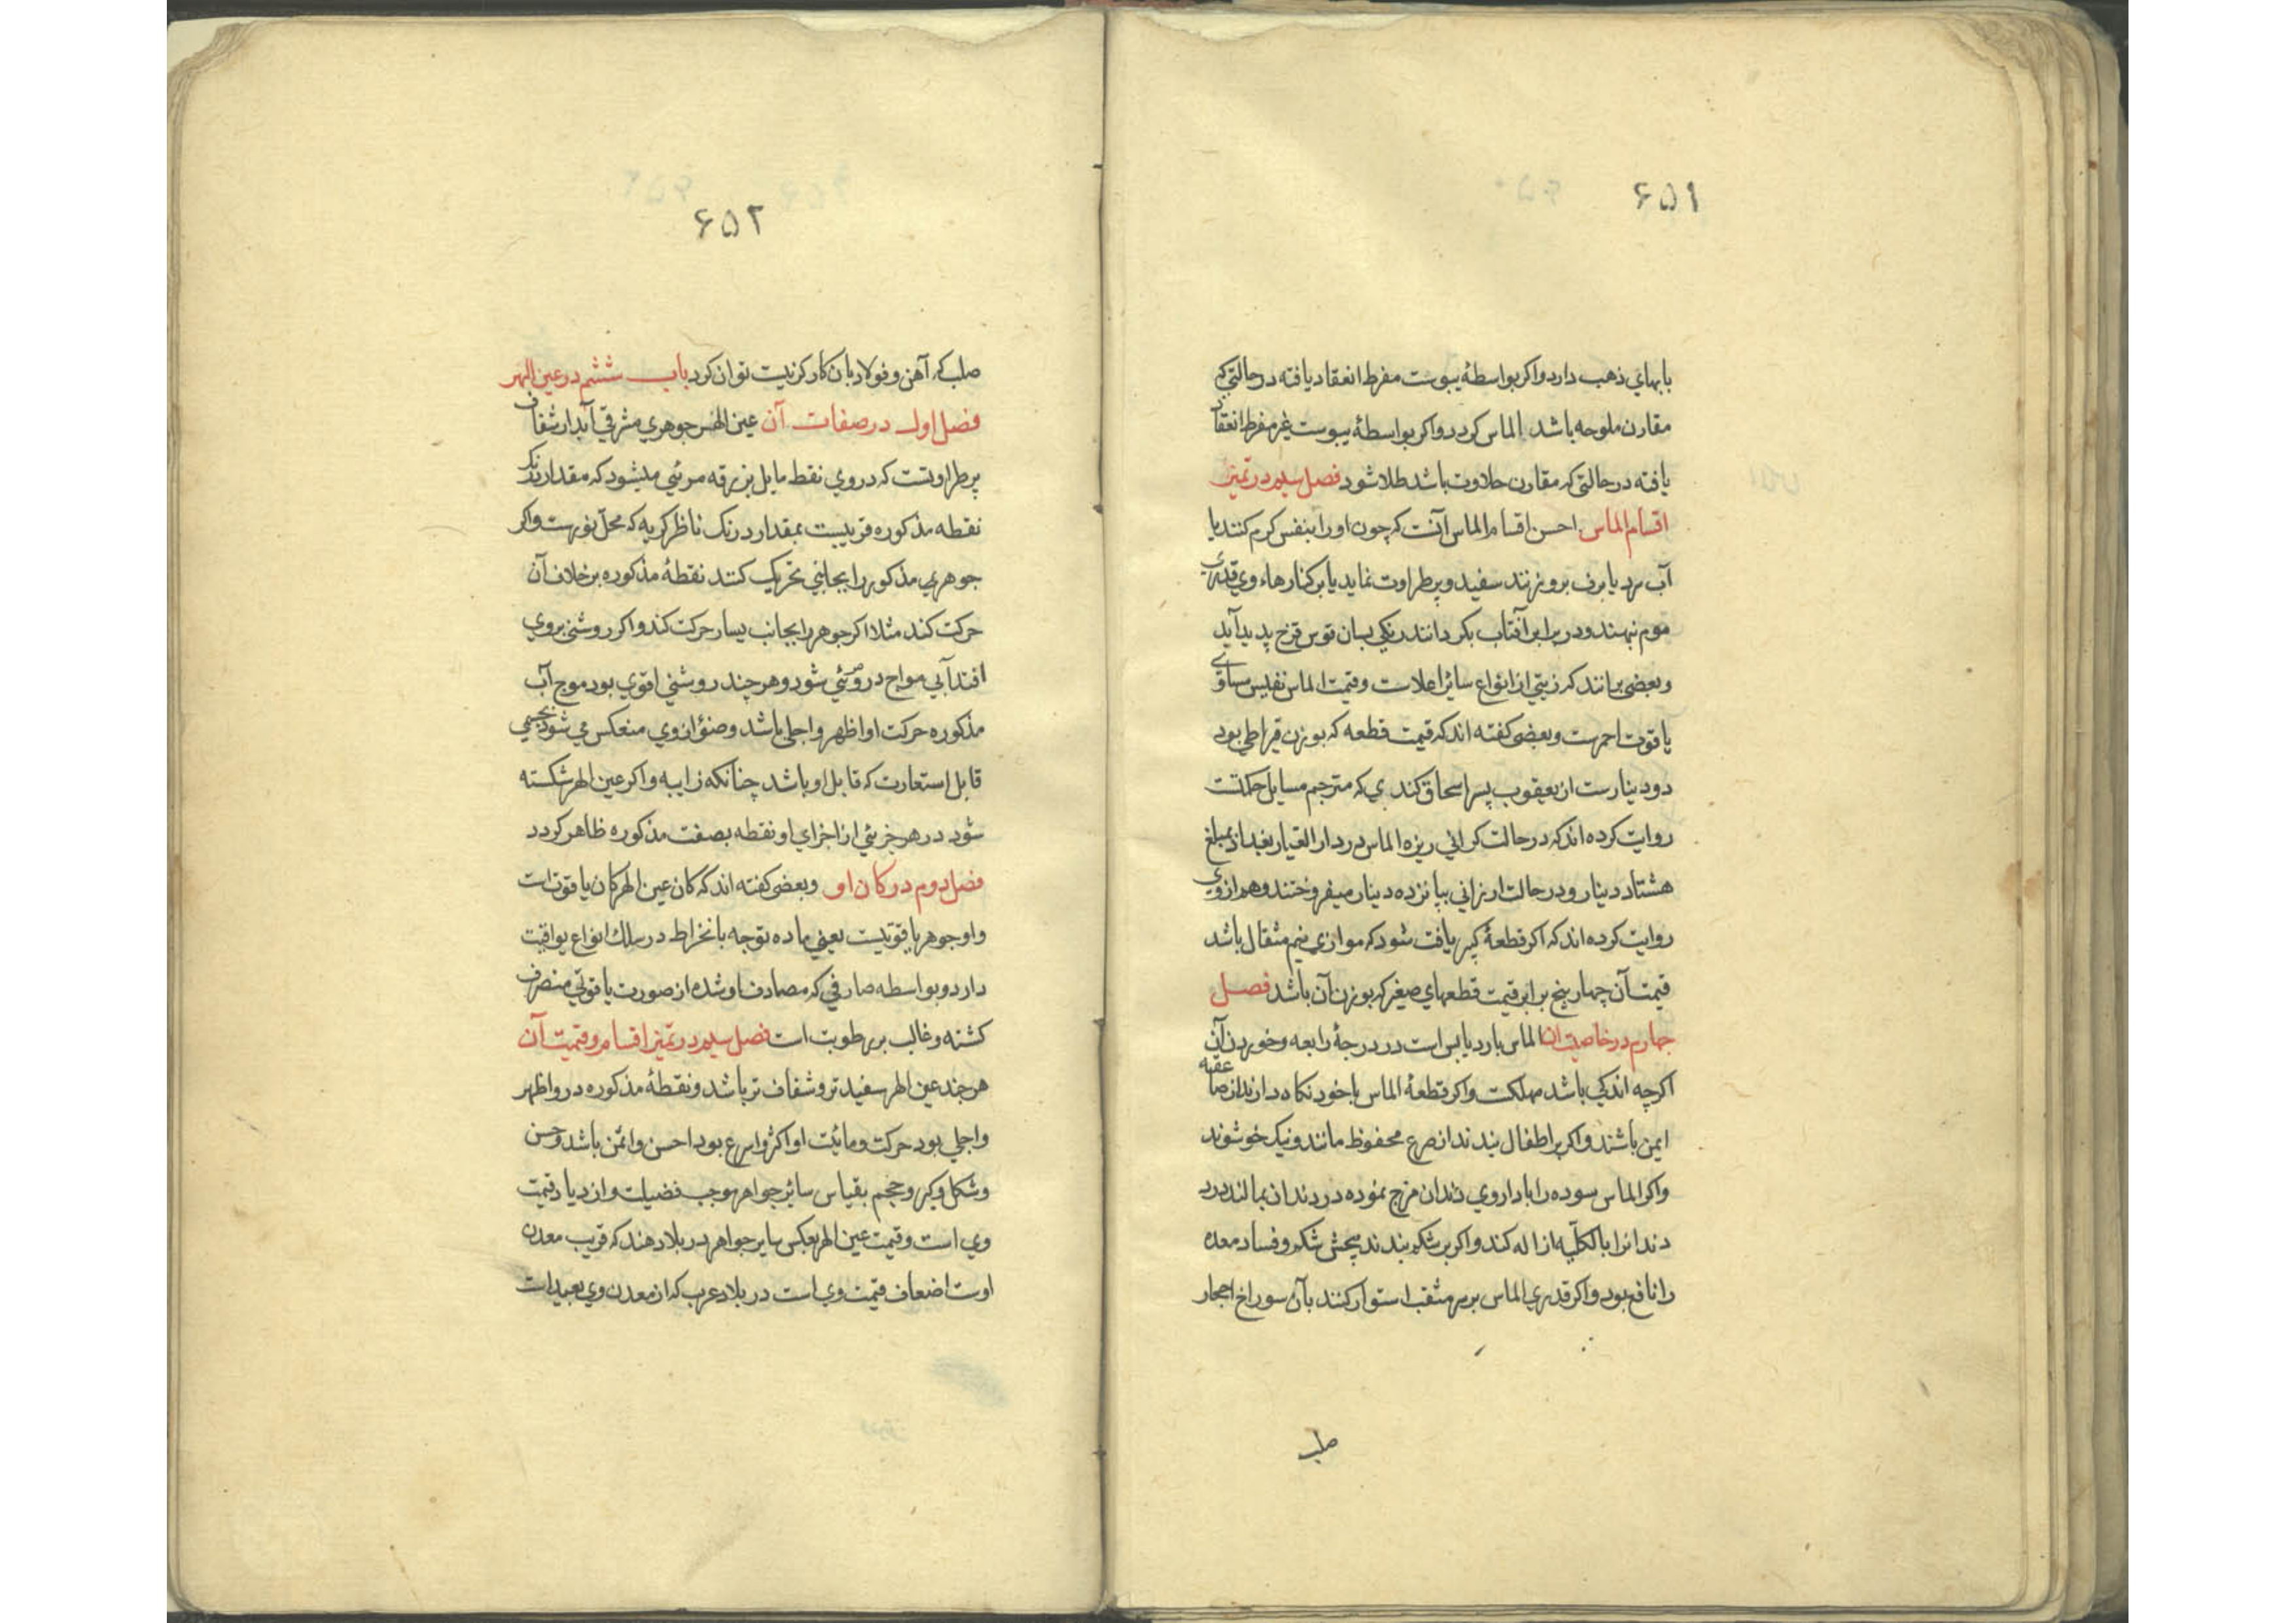 ۶۵۱
بابهاي ذهب دارد واكر بواسطهٔ يبوست مفرط انعقاد يافته در حالتي كه
مقارن ملوحه باشد الماس كردد واكر بواسطهٔ يبوست غير مفرط انعقاد
يافته در حالتي كه مقارن حلاوت باشد طلا شود فصل سيم در تميز
اقسام الماس احسن اقسام الماس آنست كه چون او را بنفس كرم كنند يا
آب سرد يا برف برو نهند سفيد و پر طراوت نمايد يا بر كنارهاء وي قدري
موم نهند و در برابر آفتاب بكردانند رنكي بسان قوس قزح پديد آيد
وبعضي برانند كه زيتي از انواع سائر اعلاست وقيمت الماس نفيس مساوي
ياقوت احمرست وبعضي كفته اند كه قيمت قطعه كه بوزن قيراطي بود
دو دينارست از يعقوب پسر اسحاق كندي كه مترجم مسايل حكمتست
روايت كرده اند كه در حالت كراني ريزه الماس در دار العيار بغداد بمبلغ
هشتاد دينار ودر حالت ارزاني بپانزده دينار ميفروختند وهم از وي
روايت كرده اند كه اكر قطعهٔ كبير يافت شود كه موازي نيم مثقال باشد
قيمت آن چهار پنج برابر قيمت قطعهاي صغير كه بوزن آن باشد فصل
چهارم در خاصيت ان الماس بارد يابس است در درجهٔ رابعه وخوردن آن
اكرچه اندكي باشد مهلكست واكر قطعهٔ الماس با خود نكاه دارند از صاعقه
ايمن باشند واكر بر اطفال بندند از صرع محفوظ مانند ونيك خو شوند
واكر الماس سوده را با داروي دندان مزج نموده در دندان بمالند درد
دندانرا بالكليه ازاله كند واكر بر شكم بندند پيچش شكم وفساد معده
را نافع بود واكر قدري الماس بر سر مثقب استوار كنند بآن سوراخ احجار
صلب
۶۵۲
صلب كه آهن و فولاد بان كاركر نيست توان كرد باب ششم در عين الهر
فصل اول در صفات آن عين الهر جوهري مشرقي آبدار شفاف
پر طراوتست كه در وي نقط مايل بزرقه مرئي ميشود كه مقدار رنك
نقطه مذكوره قريبست بمقدار رنك ناظر كربه كه محل نورست واكر
جوهري مذكور را بجانبي تحريك كنند نقطهٔ مذكوره بر خلاف آن
حركت كند مثلا اكر جوهر را بجانب يسار حركت كند واكر روشني بروي
افتد آبي مواج در و مرئي شود وهر چند روشني اقوي بود موج آب
مذكوره حركت او اظهر واجلي باشد وضؤ از وي منعكس مي شود بجسمي
قابل استعارت كه قابل او باشد چنانكه زايبه واكر عين الهر شكسته
شود در هر جزئي از اجزاي او نقطه بصفت مذكوره ظاهر كردد
فصل دوم در كان او وبعضي كفته اند كه كان عين الهر كان ياقوتست
واو جوهر ياقوتيست يعني ماده توجه بانخراط در سلك انواع يواقيت
دارد وبواسطه صارفي كه مصادف او شده از صورت ياقوتي منصرف
كشته وغالب بر رطوبت است فصل سيم در تميز اقسام وقيمت آن
هر چند عين الهر سفيدتر وشفاف تر باشد ونقطهٔ مذكوره در و اظهر
واجلي بود حركت ومائيت او اكثر واسرع بود احسن واثمن باشد وحسن
وشكل وكبر وحجم بقياس سائر جواهر موجب فضيلت وازدياد قيمت
وي است وقيمت عين الهر بعكس ساير جواهر در بلاد هند كه قريب معدن
اوست اضعاف قيمت وي است در بلاد عرب كه از معدن وي بعيد است